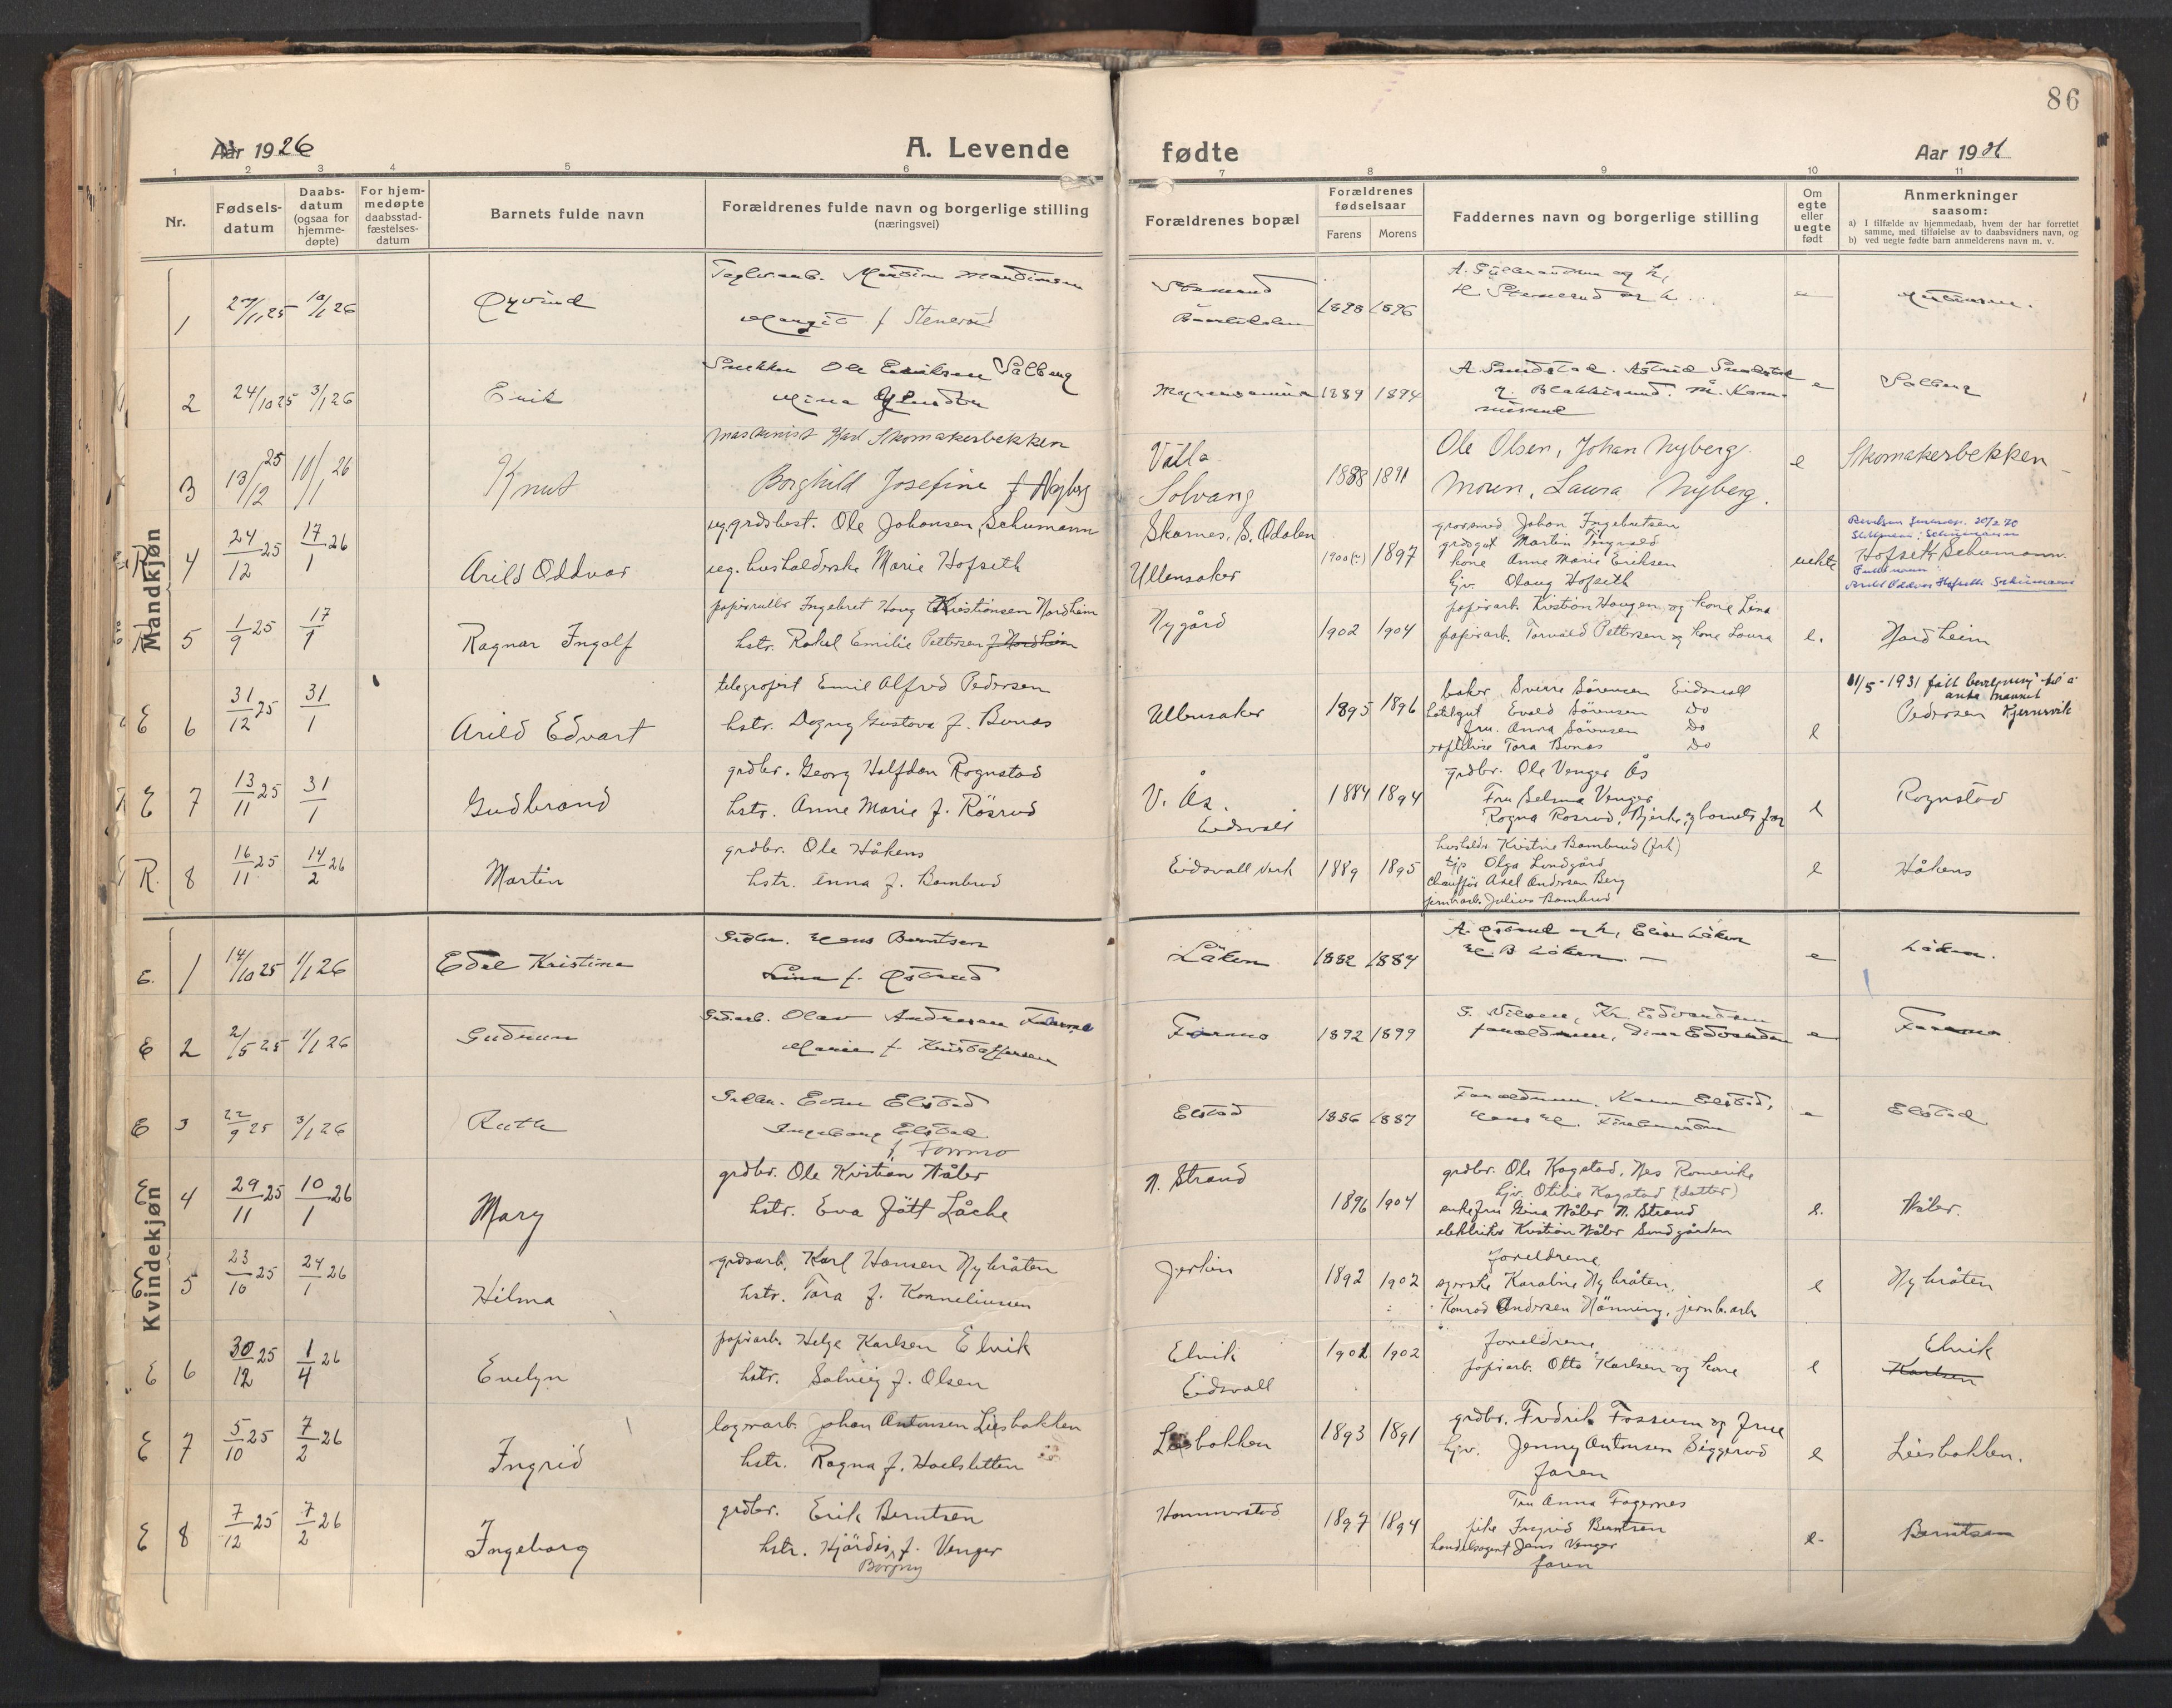 86
Aar 1926
A. Levende
fødte
Aar 1926
1 2 3 4 5 6 7 8 9 10 11
Nr.
Fødsels-
datum
Daabs-
datum
(ogsaa for
hjemme-
døpte)
For hjem-
medøpte
daabsstad-
fæstelses-
datum
Barnets fulde navn
Forældrenes fulde navn og borgerlige stilling
(næringsvei)
Forældrenes bopæl
Forældrenes
fødselsaar
Farens
Morens
Faddernes navn og borgerlige stilling
Om
egte
eller
uegte
født
Anmerkninger
saasom:
a) I tilfælde av hjemmedaab, hvem der har forrettet
samme, med tilføielse av to daabsvidners navn, og
b) ved uegte fødte barn anmelderens navn m. v.
Mandkjøn
1 10/1 26 Øyvind
Margit f Stenerud
1896
2 24/10 25 3/1 26 Erik
Ole Eriksen Solberg
Mina
1889 1894
A. Sundstad. Astrid Sundstad
e Solberg
3 13/12 25 10/1 26 Knut
Maskinist Karl Skomakerbekken
Borghild Josefine f Nyberg
Solvang
1888 1891
Ole Olsen, Johan Nyberg.
Moren, Laura Nyberg.
e Skomakerbekken
R 4 24/12 25 17/1 26 Arild Oddvar
ug. grdsbest. Ole Johansen Schumann
ug. husholderske Marie Hofseth
Skarnes, S. Odalen
Ullensaker
1900 (?) 1897
grovsmed Johan Ingebretsen
grdsgut Martin
kone Anne Marie Eriksen
hjv. Olaug Hofseth
uekte
Hofseth Schumann
Arild Oddvar Hofseth Schumann
R 5 1/9 25 17/1 Ragnar Ingolf
papirruller Ingebret Houg Kristiansen Nordheim
hstr. Rakel Emilie Pettersen f Nordheim
Nygård
1902 1904
papirarb. Kristian Haugen og kone Lina
papirarb. Torvald Pettersen og kone Laura
e. Nordheim
E 6 31/12 25 31/1 Arild Edvart
telegrafist Emil Alfred Pedersen
hstr. Dagny Gustava f. Bonas
Ullensaker
1895 1896
baker Sverre Sørensen Eidsvall
hotelgut Evald Sørensen Do
fru. Anna Sørensen Do
Tora Bonas Do
e
11/5 - 1931 fått bevilgning til å
anta navnet
Pedersen Kjernsvik
E 7 13/11 25 31/1 Gudbrand
grdbr. Georg Halfdan Rognstad
hstr. Anne Marie f. Rösrud
V. Ås.
Eidsvall
1884 1894
grdbr. Ole Venger Ås
Fru Selma Venger
Ragna Rosrud, Bjerke, og barnets far
e Rognstad
R. 8 16/11 25 14/2 26 Martin
grdbr. Ole Håkens
hstr. Anna f. Bambrud
Eidsvall Verk
1889 1895
husholdr. Kristine Bambrud (frk)
tjp Olga Lundgård
Chauffør Axel Andersen Berg
jernbarb. Julius Bambrud
e Håkens
Kvindekjøn
E. 1 14/10 25 1/1 26 Edel Kristine
Grdbr. Hans Berntsen
Lina f. Østrud
Låken
1882 1884
e
E 2 2/5 25 1/1 26 Gudrun
Grdarb. Olav Andresen Formo
Marie f. Kristoffersen
Formo
1892 1899
G. Nilsen, Kr. Edvardsen
e Formo
E 3 22/9 25 3/1 26 Ruth
Grdbr. Even Elstad
Ingeborg Elstad
f Formo
Elstad
1886 1887
e Elstad
E 4 29/11 25 10/1 26 Mary
grdbr. Ole Kristian Nåler
hstr. Eva Jött Låche
N. Strand
1896 1904
grdbr. Ole Kogstad, Nes Romerike
hjv. Otilie Kogstad (datter)
enkefru Gina Nåler N. Strand
elektriker Kristian Nåler Sundgården
e. Nåler.
E 5 23/10 25 24/1 26 Hilma
grdsarb. Karl Hansen Nybråten
hstr. Tora f. Korneliussen
1892 1902
foreldrene,
Karoline Nybråten,
Konrad Andersen Hänning, jernb.arb
e Nybråten
E 6 30/12 25 1/4 26 Evelyn
papirarb. Helge Karlsen Elvik
hstr. Solveig f. Olsen
Elvik
Eidsvall
1901 1902
foreldrene
papirarb. Otto Karlsen og kone
e Elvik
Karlsen
E 7 5/10 25 7/2 26 Ingrid
lagerarb. Johan Antonsen Liesbakken
hstr. Ragna f. Hoelsletten
Liesbakken
1893 1891
grdbr. Fredrik Fossum og frue
hjv. Jenny Antonsen Siggerud
faren
e Liesbakken.
E 8 7/12 25 7/2 26 Ingeborg
grdbr. Erik Berntsen
hstr. Hjördis f. Venger
Borgny
Hammerstad
1897 1894
Fru Anna Fagernes
pike Ingrid Berntsen
handelsagent Jens Venger
faren
e. Berntsen